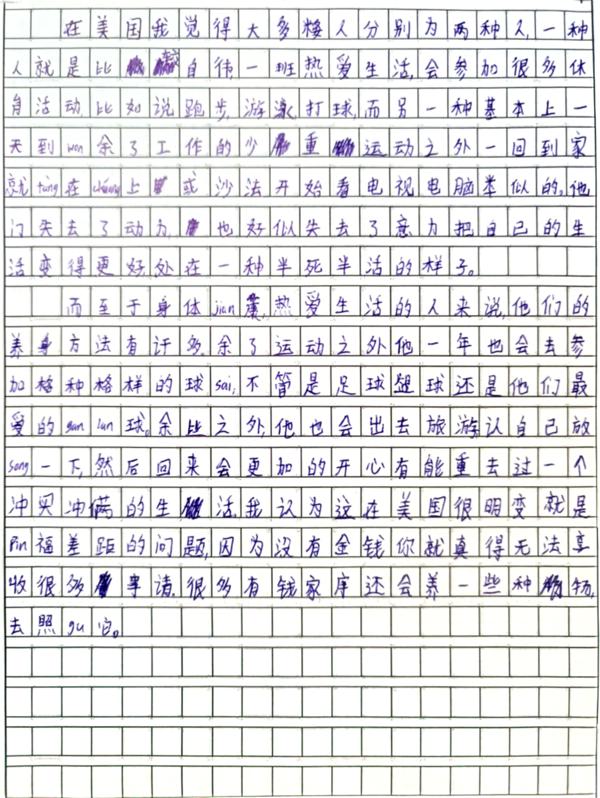 在美国我觉得大多样人分别为两种人,一种
人就是比较自律一班热爱生活,会参加很多体
育活动比如说跑步,游泳,打球,而另一种基本上一
天到wan余了工作的少重运动之外一回到家
就tang在chuang上或沙法开始看电视电脑类似的,他
门失去了动力,也好似失去了意力把自己的生
活变得更好,处在一种半死半活的样子。
而至于身体jian康,热爱生活的人来说,他们的
养身方法有许多,余了运动之外他一年也会去参
加格种格样的球sai,不管是足球蓝球还是他们最
爱的gan lan球。余比之外,他也会出去旅游认自己放
song一下,然后回来会更加的开心有能重去过一个
冲买冲满的生活,我认为这在美国很明变就是
Pin福差距的问题,因为没有金钱你就真得无法享
收很多事请.很多有钱家库还会养一些种物,
去照gu它。